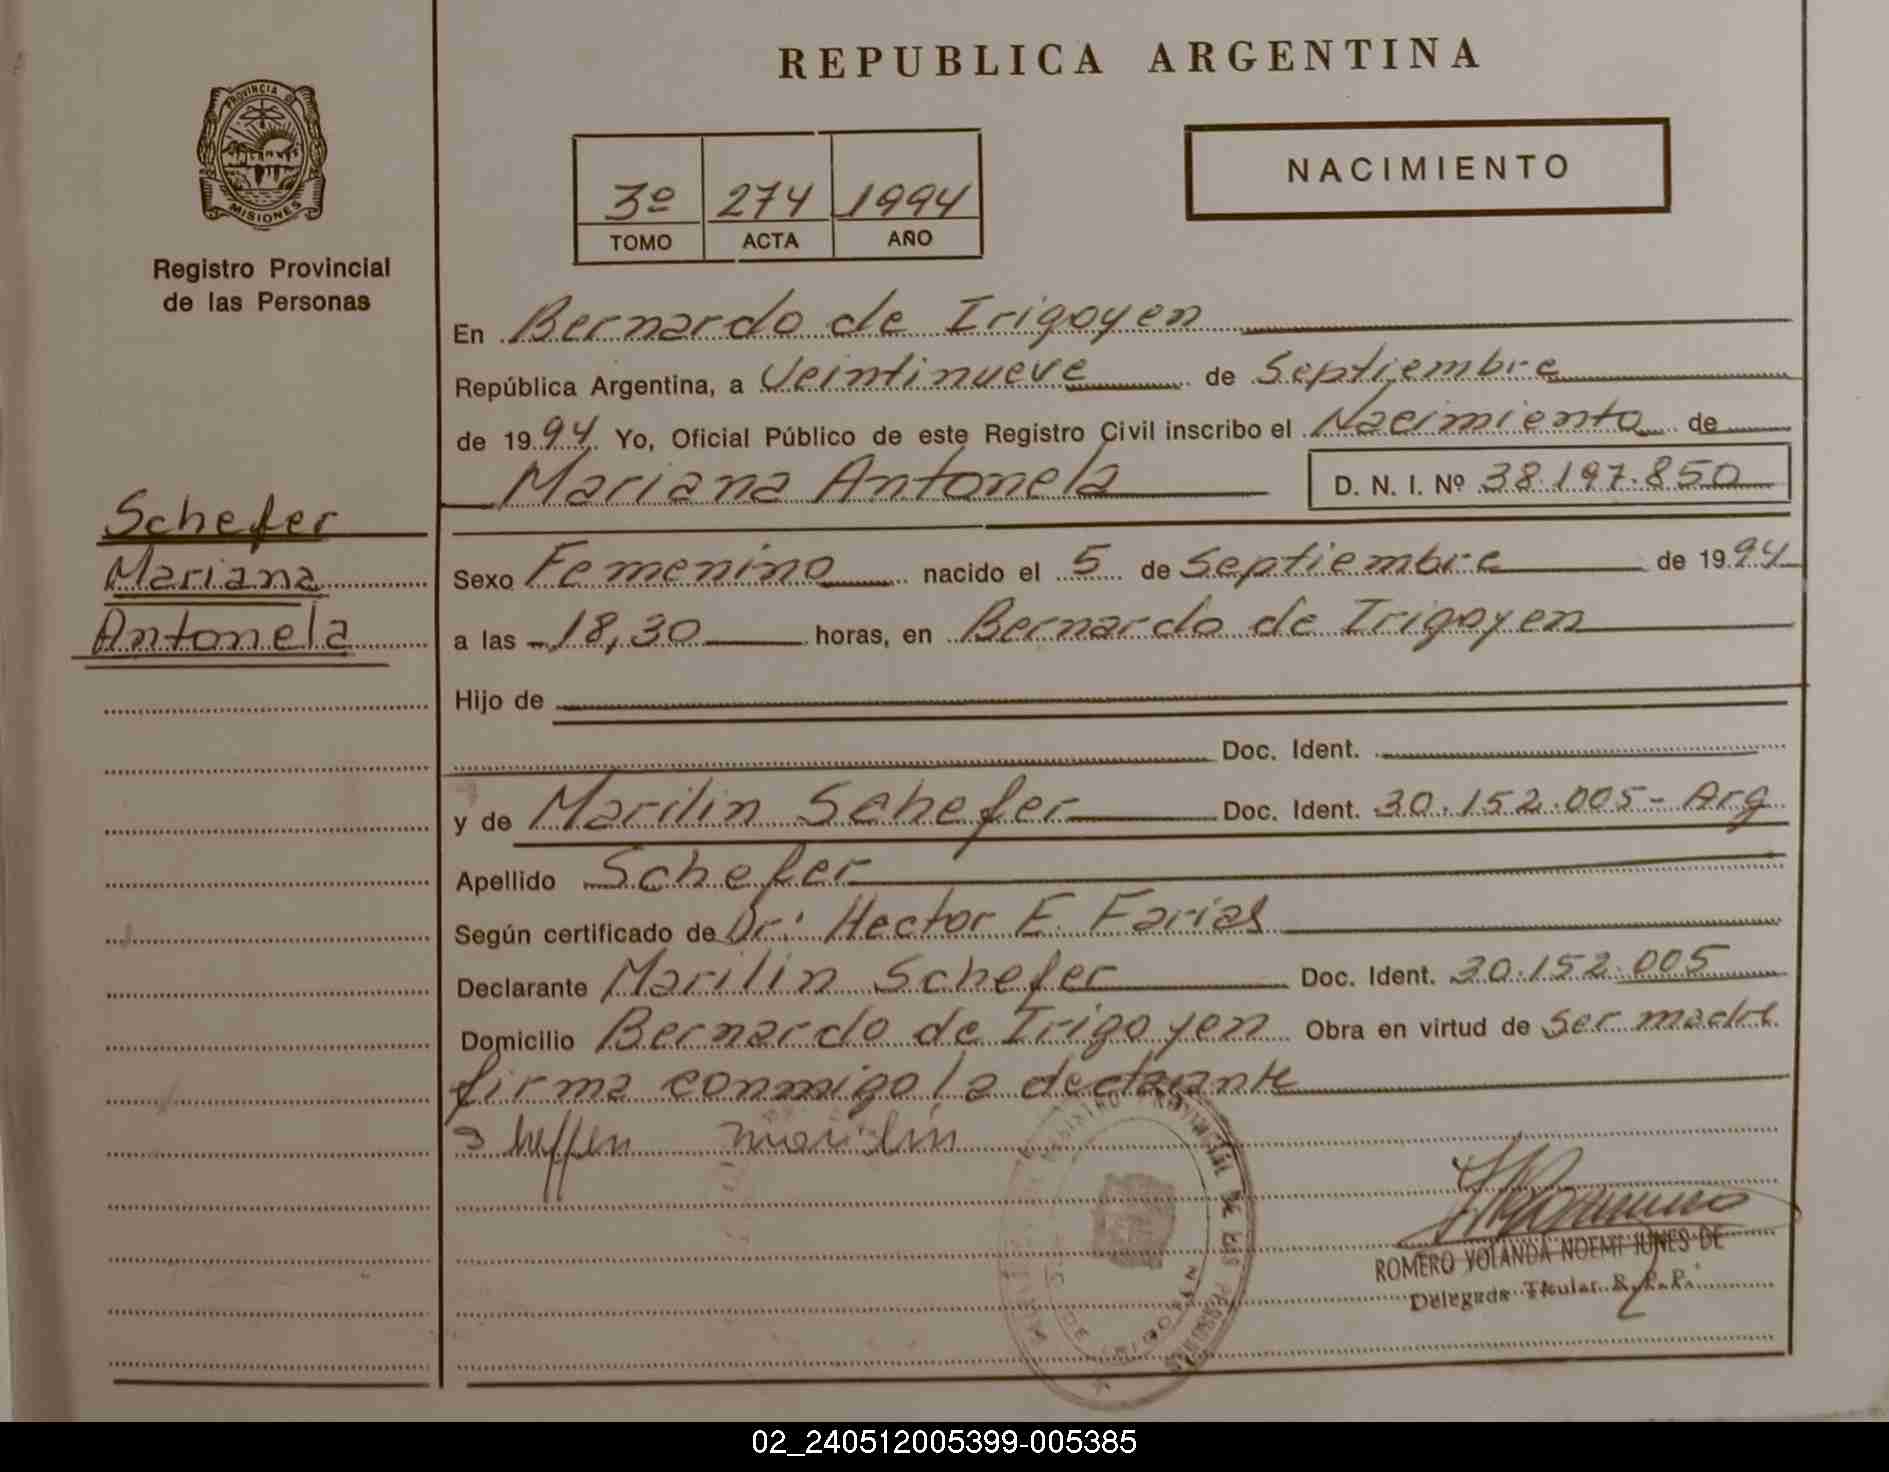 REPUBLICA ARGENTINA
PROVINCIA DE
MISIONES
Registro Provincial
de las Personas
3º 274 1994
TOMO ACTA AÑO
NACIMIENTO
Schefer
Mariana
Antonela
En Bernardo de Irigoyen
República Argentina, a Veintinueve de Septiembre
de 1994 Yo, Oficial Público de este Registro Civil inscribo el Nacimiento de
Mariana Antonela D. N. I. Nº 38.197.850
Sexo Femenino nacido el 5 de Septiembre de 1994
a las 18,30 horas, en Bernardo de Irigoyen
Hijo de
Doc. Ident.
y de Marilin Schefer Doc. Ident. 30.152.005 - Arg
Apellido Schefer
Según certificado de Dr: Hector E. Farias
Declarante Marilin Schefer Doc. Ident. 30.152.005
Domicilio Bernardo de Irigoyen Obra en virtud de ser madre
firma conmigo la declarante
marilin
REGISTRO PROVINCIAL DE LAS PERSONAS
DE IRIGOYEN
ROMERO YOLANDA NOEMI JUNES DE
Delegada Titular R.P.P.
02_240512005399-005385